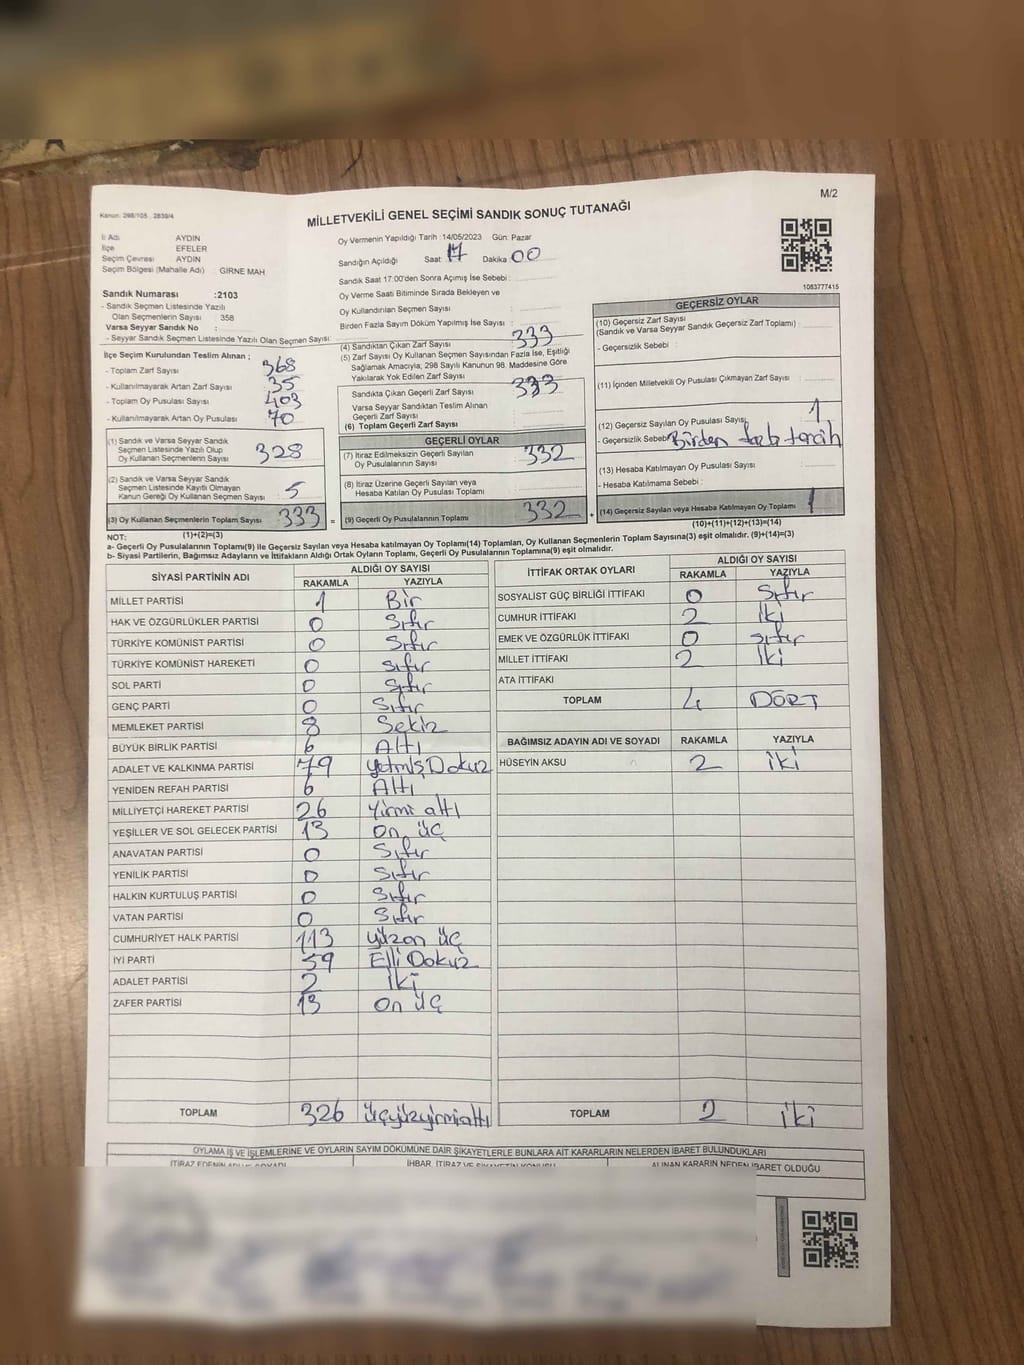 M/2
Kanun: 298/105, 2839/4
MİLLETVEKİLİ GENEL SEÇİMİ SANDIK SONUÇ TUTANAĞI
İl Adı AYDIN
İlçe EFELER
Seçim Çevresi AYDIN
Seçim Bölgesi (Mahalle Adı) : GİRNE MAH
Sandık Numarası :2103
- Sandık Seçmen Listesinde Yazılı
Olan Seçmenlerin Sayısı : 358
Varsa Seyyar Sandık No :
- Seyyar Sandık Seçmen Listesinde Yazılı Olan Seçmen Sayısı:
İlçe Seçim Kurulundan Teslim Alınan ;
- Toplam Zarf Sayısı : 368
- Kullanılmayarak Artan Zarf Sayısı : 35
- Toplam Oy Pusulası Sayısı : 403
- Kullanılmayarak Artan Oy Pusulası : 70
(1) Sandık ve Varsa Seyyar Sandık
Seçmen Listesinde Yazılı Olup
Oy Kullanan Seçmenlerin Sayısı : 328
(2) Sandık ve Varsa Seyyar Sandık
Seçmen Listesinde Kayıtlı Olmayan
Kanun Gereği Oy Kullanan Seçmen Sayısı : 5
(3) Oy Kullanan Seçmenlerin Toplam Sayısı : 333
(1)+(2)=(3)
Oy Vermenin Yapıldığı Tarih :14/05/2023 Gün: Pazar
Sandığın Açıldığı Saat 17 Dakika 00
Sandık Saat 17:00'den Sonra Açımış İse Sebebi :
Oy Verme Saati Bitiminde Sırada Bekleyen ve
Oy Kullandırılan Seçmen Sayısı :
Birden Fazla Sayım Döküm Yapılmış İse Sayısı :
(4) Sandıktan Çıkan Zarf Sayısı : 333
(5) Zarf Sayısı Oy Kullanan Seçmen Sayısından Fazla İse, Eşitliği
Sağlamak Amacıyla, 298 Sayılı Kanunun 98. Maddesine Göre
Yakılarak Yok Edilen Zarf Sayısı :
Sandıkta Çıkan Geçerli Zarf Sayısı : 333
Varsa Seyyar Sandıktan Teslim Alınan
Geçerli Zarf Sayısı :
(6) Toplam Geçerli Zarf Sayısı :
GEÇERLİ OYLAR
(7) İtiraz Edilmeksizin Geçerli Sayılan
Oy Pusulalarının Sayısı : 332
(8) İtiraz Üzerine Geçerli Sayılan veya
Hesaba Katılan Oy Pusulası Toplamı :
= (9) Geçerli Oy Pusulalarının Toplamı : 332 +
1083777415
GEÇERSİZ OYLAR
(10) Geçersiz Zarf Sayısı
(Sandık ve Varsa Seyyar Sandık Geçersiz Zarf Toplamı) :
- Geçersizlik Sebebi :
(11) İçinden Milletvekili Oy Pusulası Çıkmayan Zarf Sayısı :
(12) Geçersiz Sayılan Oy Pusulası Sayısı : 1
- Geçersizlik Sebebi : Birden fazla tercih
(13) Hesaba Katılmayan Oy Pusulası Sayısı :
- Hesaba Katılmama Sebebi :
(14) Geçersiz Sayılan veya Hesaba Katılmayan Oy Toplamı : 1
(10)+(11)+(12)+(13)=(14)
NOT:
a- Geçerli Oy Pusulalarının Toplamı(9) ile Geçersiz Sayılan veya Hesaba katılmayan Oy Toplamı(14) Toplamları, Oy Kullanan Seçmenlerin Toplam Sayısına(3) eşit olmalıdır. (9)+(14)=(3)
b- Siyasi Partilerin, Bağımsız Adayların ve İttifakların Aldığı Ortak Oyların Toplamı, Geçerli Oy Pusulalarının Toplamına(9) eşit olmalıdır.
SİYASİ PARTİNİN ADI ALDIĞI OY SAYISI
RAKAMLA YAZIYLA
MİLLET PARTİSİ 1 Bir
HAK VE ÖZGÜRLÜKLER PARTİSİ 0 Sıfır
TÜRKİYE KOMÜNİST PARTİSİ 0 Sıfır
TÜRKİYE KOMÜNİST HAREKETİ 0 Sıfır
SOL PARTİ 0 Sıfır
GENÇ PARTİ 0 Sıfır
MEMLEKET PARTİSİ 8 Sekiz
BÜYÜK BİRLİK PARTİSİ 6 Altı
ADALET VE KALKINMA PARTİSİ 79 yetmiş Dokuz
YENİDEN REFAH PARTİSİ 6 Altı
MİLLİYETÇİ HAREKET PARTİSİ 26 Yirmi altı
YEŞİLLER VE SOL GELECEK PARTİSİ 13 On üç
ANAVATAN PARTİSİ 0 Sıfır
YENİLİK PARTİSİ 0 Sıfır
HALKIN KURTULUŞ PARTİSİ 0 Sıfır
VATAN PARTİSİ 0 Sıfır
CUMHURİYET HALK PARTİSİ 113 yüzon üç
İYİ PARTİ 59 Elli Dokuz
ADALET PARTİSİ 2 iki
ZAFER PARTİSİ 13 On üç
TOPLAM 326 üçyüzyirmialtı
İTTİFAK ORTAK OYLARI ALDIĞI OY SAYISI
RAKAMLA YAZIYLA
SOSYALIST GÜÇ BİRLİĞİ İTTİFAKI 0 Sıfır
CUMHUR İTTİFAKI 2 iki
EMEK VE ÖZGÜRLÜK İTTİFAKI 0 sıfır
MİLLET İTTİFAKI 2 iki
ATA İTTİFAKI
TOPLAM 4 DÖRT
BAĞIMSIZ ADAYIN ADI VE SOYADI RAKAMLA YAZIYLA
HÜSEYİN AKSU 2 iki
TOPLAM 2 iki
OYLAMA İŞ VE İŞLEMLERİNE VE OYLARIN SAYIM DÖKÜMÜNE DAİR ŞİKAYETLERLE BUNLARA AİT KARARLARIN NELERDEN İBARET BULUNDUKLARI
İTİRAZ EDENİN ADI VE SOYADI İHBAR, İTİRAZ VE ŞİKAYETİN KONUSU ALINAN KARARIN NEDEN İBARET OLDUĞU